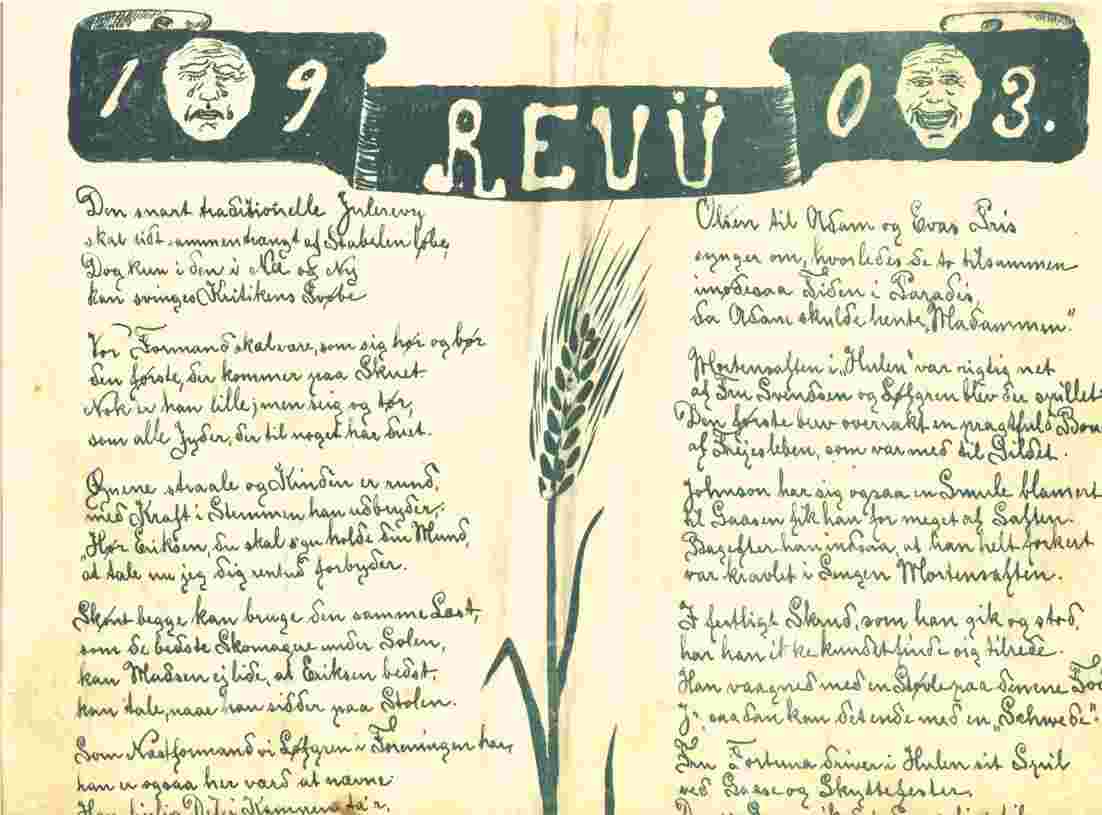 19 REVÜ 03.
Den snart traditionelle Julerevy
skal lidt sammentrængt af Stabelen løbe,
Dog kun i den i Ni og Ny
kan svinges Kritikens Svøbe
Vor Formand skal være, som sig hør og bør
den første, der kommer paa Skuet
Nok er han lille; men seig og tør,
som alle Jyder, der til noget har duet.
Øjnene straale og Kinden er rund,
med Kraft i Stemmen han udbryder:
"Hør Eriksen, du skal s'gu holde din Mund,
at tale nu jeg dig rentud forbyder.
Skønt begge kan bruge den samme Læst,
som de bedste Skomagere under Solen,
kan Madsen ej lide, at Eriksen bedst
kan tale, naar han sidder paa Stolen.
Som Næstformand vi Løfgren i Foreningen har,
han er ogsaa her værd at nævne
Han Del i Kampene ta'r,
Olsen til Adam og Evas Pris
synger om, hvorledes de to tilsammen
imødesaa Tiden i Paradis,
da Adam skulde hente "Madammen"
Mortensaften i "Hulen" var rigtig net
af Fru Svendsen og Løfgren blev der spillet
Den første blev overrakt en pragtfuld
af Fejesleben, som var med til Gildet.
Johnson har sig ogsaa en Smule blameret
til Gaasen fik han for meget af Saften.
Bagefter han indsaa, at han helt forkert
var kravlet i Sengen Mortensaften.
I festligt Skrud, som han gik og stod,
har han ikke kundet finde sig tilrede.
Han vaagned med en Støvle paa denene
Ja, saadan kan det ende med en "Schwede".
Fru Fortuna driver i Hulen sit Spil
ved Gaase og Skyttefester.